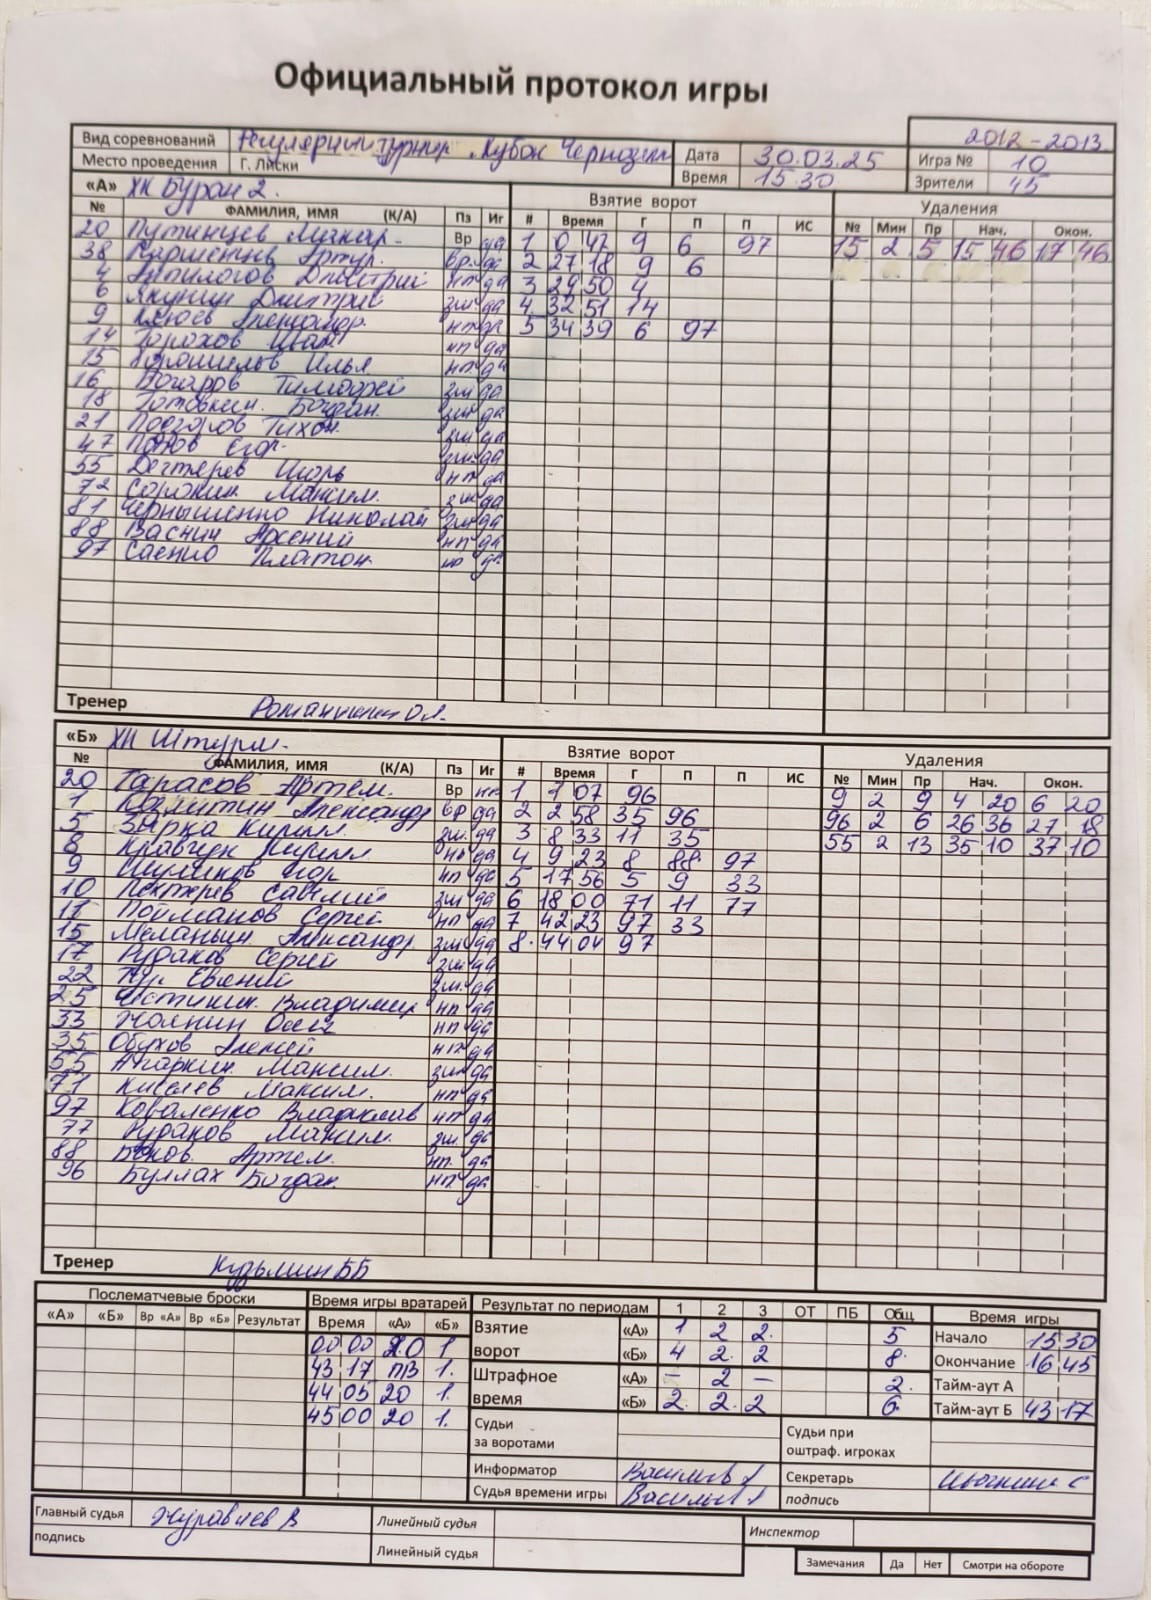 Официальный протокол игры
2012-2013
Вид соревнований Регулярный турнир Кубок Дата 30.03.25 Игра № 10
Место проведения Г. Лиски Время 15.30 Зрители 45
«А» ХК Буран 2. Взятие ворот Удаления
№ ФАМИЛИЯ, ИМЯ (К/А) Пз Иг # Время Г П П ИС № Мин Пр Нач. Окон.
20 Путинцев Вр да 1 0 47 9 6 97 15 2 5 15 46 17 46
38 Артур. вр. да 2 27 18 9 6
4 Дмитрий нп да 3 29 50 4
6 Якунин Дмитрий зщ. да 4 32 51 14
9 Клюев Александр. нп да 5 34 39 6 97
14 Горохов Иван нп да
15 Ворошилов Илья нп да
16 Бочаров Тимофей зщ да
18 Готовкин. Богдан. зщ да
21 Тихон. зщ да
47 Попов Егор. зщ. да
55 Дегтярев Игорь нп да
72 Сорокин Максим. зщ да
81 Чернышенко Николай зщ да
88 Васнин Арсений нп да
97 Саенко Платон нп да
Тренер
«Б» ХК Штурм. Взятие ворот Удаления
№ ФАМИЛИЯ, ИМЯ (К/А) Пз Иг # Время Г П П ИС № Мин Пр Нач. Окон.
20 Тарасов Артем. Вр 1 1 07 96 9 2 9 4 20 6 20
1 Александр вр да 2 2 58 35 96 96 2 6 26 36 27 18
5 Кирилл. зщ. да 3 8 33 11 35 55 2 13 35 10 37 10
8 Кравчук Кирилл нп да 4 9 23 8 88 97
9 нп да 5 17 56 5 9 33
10 зщ да 6 18 00 71 11 77
11 Пойманов Сергей нп да 7 42 23 97 33
15 Меланьин Александр. зщ да 8. 44 04 97
17 Рудаков Сергей зщ да
22 Евгений зщ. да
25 Владимир нп да
33 нп да
35 Обухов Алексей нп да
55 Агаркин. Максим. зщ да
71 Киселев Максим. нп да
97 Коваленко Владислав нп да
77 Рудаков Максим. зщ. да
88 Артем. нп. да
96 Буллах Богдан. нп да
Тренер Кузьмин Б Б
Послематчевые броски Время игры вратарей Результат по периодам 1 2 3 ОТ ПБ Общ Время игры
«А» «Б» Вр «А» Вр «Б» Результат Время «А» «Б» Взятие ворот «А» 1 2 2. 5 Начало 15 30
00 00 20 1 «Б» 4 2. 2 8. Окончание 16 45
43 17 ПВ 1. Штрафное время «А» – 2 – 2. Тайм-аут А
44 05 20 1. «Б» 2. 2. 2 6 Тайм-аут Б 43 17
45 00 20 1. Судьи за воротами Судьи при оштраф. игроках
Информатор Секретарь
Судья времени игры подпись
Главный судья Журавлев В Линейный судья Инспектор
подпись Линейный судья Замечания Да Нет Смотри на обороте